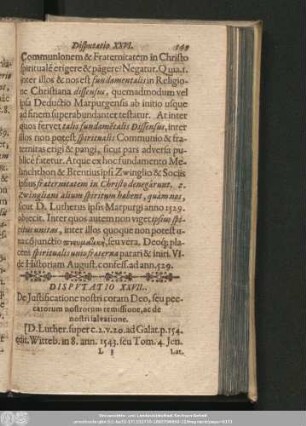 Disputatio XXVI. 169
Communionem & Fraternitatem in Christo
spiritualẽ erigere & pãgere? Negatur. Quia 1.
inter illos & nos est fundamentalis in Religio-
ne Christiana dissensus, quemadmodum vel
ipsa Deductio Marpurgensis ab initio usque
ad finem superabundanter testatur. At inter
quos fervet talis fundamẽtalis Dissensus, inter
illos non potest spiritualis Communio & fra-
ternitas erigi & pangi, sicut pars adversa pu-
blicè fatetur. Atque ex hoc fundamento Me-
lanchthon & Brentius ipsi Zwinglio & Sociis
ipsius fraternitatem in Christo denegârunt. 2.
Zwingliani alium spiritum habent, quàm nos,
sicut D. Lutherus ipsis Marpurgi anno 1529.
objecit. Inter quos autem non viget ipsius spi-
ritus unitas, inter illos quoque non potest u-
na conjunctio seu vera, Deoq́; pla-
cens spiritualis unio fraterna parari & iniri. Vi-
de Historiam August. confess. ad ann. 529.
DISPUTATIO XXVII.
De Justificatione nostri coram Deo, seu pec-
catorum nostrorum remissione, ac de
nostri salvatione.
[D. Luther. super c. 2. v. 20. ad Galat. p. 154.
edit. Witteb. in 8. ann. 1543. seu Tom. 4. Jen.
L 5 Lat.